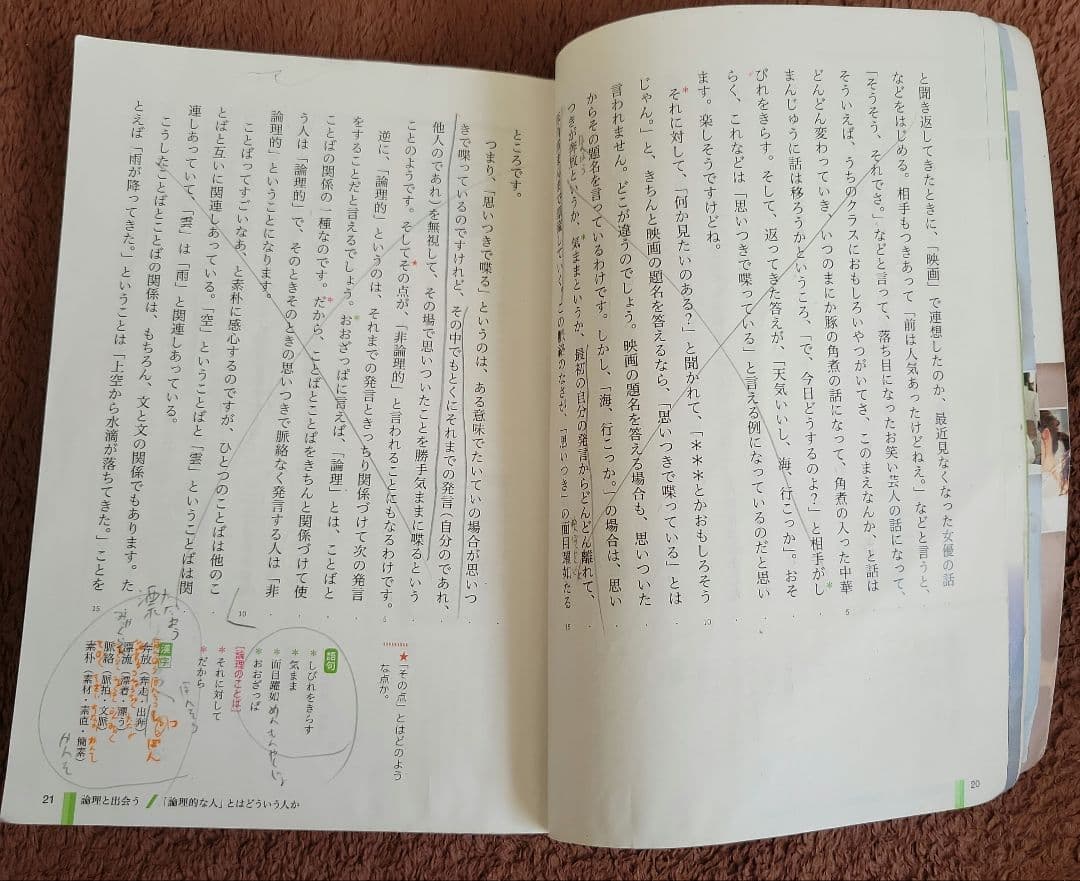 と聞き返してきたときに、「映画」で連想したのか、最近見なくなった女優の話
などをはじめる。相手もつきあって「前は人気あったけどねえ。」などと言うと、
「そうそう、それでさ。」などと言って、落ち目になったお笑い芸人の話になって、
そういえば、うちのクラスにおもしろいやつがいてさ、このまえなんか、と話は
どんどん変わっていき、いつのまにか豚の角煮の話になって、角煮の入った中華
まんじゅうに話は移ろうかというころ、「で、今日どうするのよ?」と相手がし
びれをきらす。そして、返ってきた答えが、「天気いいし、海、行こっか」。おそ
らく、これなどは「思いつきで喋っている」と言える例になっているのだと思い
ます。楽しそうですけどね。
それに対して、「何か見たいのある?」と聞かれて、「＊＊＊とかおもしろそう
じゃん。」と、きちんと映画の題名を答えるなら、「思いつきで喋っている」とは
言われません。どこが違うのでしょう。映画の題名を答える場合も、思いついた
からその題名を言っているわけです。しかし、「海、行こっか。」の場合は、思い
つきが奔放というか、気ままというか、最初の自分の発言からどんどん離れて、
の脈絡のなさが、「思いつき」の面目躍如たる
5
10
15
20
ところです。
つまり、「思いつきで喋る」というのは、ある意味でたいていの場合が思いつ
きで喋っているのですけれど、その中でもとくにそれまでの発言(自分のであれ、
他人のであれ)を無視して、その場で思いついたことを勝手気ままに喋るという
ことのようです。そしてその点が、「非論理的」と言われることにもなるわけです。
逆に、「論理的」というのは、それまでの発言ときっちり関係づけて次の発言
をすることだと言えるでしょう。おおざっぱに言えば、「論理」とは、ことばと
ことばの関係の一種なのです。だから、ことばとことばをきちんと関係づけて使
う人は「論理的」で、そのときそのときの思いつきで脈絡なく発言する人は「非
論理的」ということになります。
ことばってすごいなあ、と素朴に感心するのですが、ひとつのことばは他のこ
とばと互いに関連しあっている。「空」ということばと「雲」ということばは関
連しあっていて、「雲」は「雨」と関連しあっている。
こうしたことばとことばの関係は、もちろん、文と文の関係でもあります。た
とえば「雨が降ってきた。」ということは「上空から水滴が落ちてきた。」ことを
5
10
15
★「その点」とはどのよう
な点か。
語句
＊しびれをきらす
＊気まま
＊面目躍如
＊おおざっぱ
[論理のことば]
＊それに対して
＊だから
漢字
奔放(奔走・出奔)
漂流(漂着・漂う)
脈絡(脈拍・文脈)
素朴(素材・素直・簡素)
かんそ
21 論理と出会う / 「論理的な人」とはどういう人か